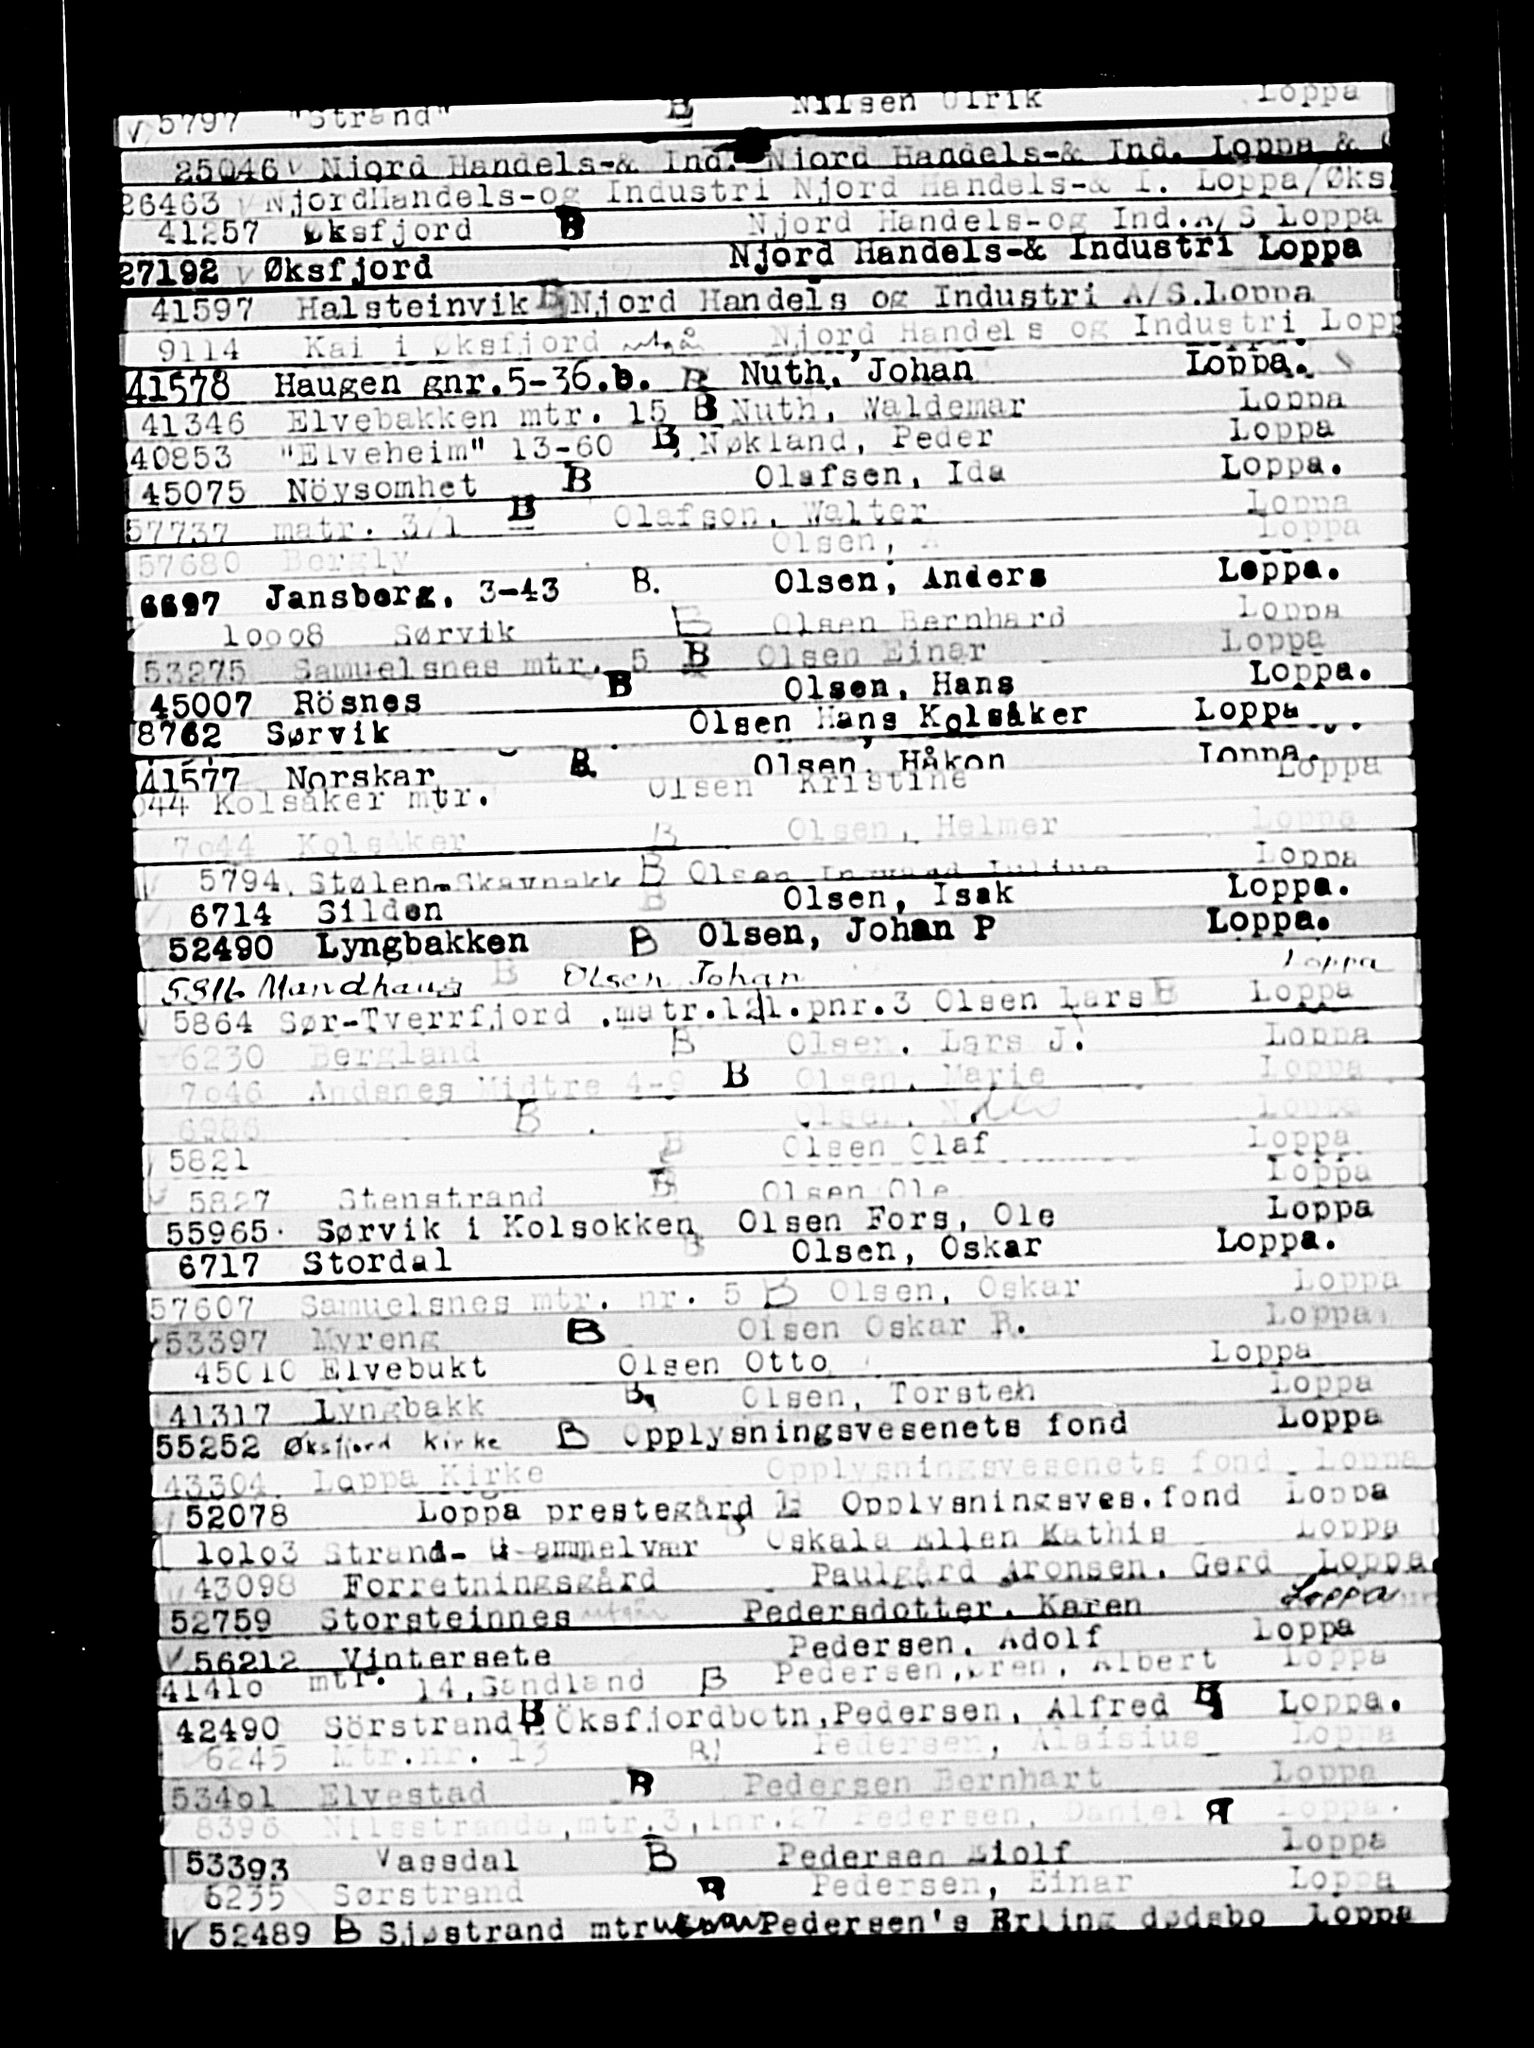 √ 5797 "Strand" B Nilsen Ulrik Loppa
25046 √ Njord Handels-& Ind. Njord Handels-& Ind. Loppa &
26463 √ NjordHandels-og Industri Njord Handels-& I. Loppa/Øks
41257 Øksfjord B Njord Handels-og Ind.A/S Loppa
27192 √ Øksfjord Njord Handels-& Industri Loppa
41597 Halsteinvik B Njord Handels og Industri A/S.Loppa
9114 Kai i Øksfjord utgår Njord Handels og Industri Lopp
41578 Haugen gnr.5-36.b. B Nuth, Johan Loppa.
41346 Elvebakken mtr. 15 B Nuth, Waldemar Loppa
40853 "Elveheim" 13-60 B Nøkland, Peder Loppa
45075 Nöysomhet B Olafsen, Ida Loppa.
57737 matr. 3/1 B Olafson, Walter Loppa
57680 Bergly Olsen, A Loppa
6697 Jansborg. 3-43 B. Olsen, Anders Loppa.
10008 Sørvik B Olsen Bernhard Loppa
53275 Samuelsnes mtr. 5 B Olsen Einar Loppa
45007 Rösnes B Olsen, Hans Loppa.
8762 Sørvik Olsen Hans Kolsåker Loppa
41577 Norskar B Olsen, Håkon Loppa.
044 Kolsåker mtr. Olsen Kristine Loppa
7044 Kolsåker B Olsen, Helmer Loppa
5794 Stølen-Skavnakk B Olsen Ingvald Julius Loppa
6714 Silden B Olsen, Isak Loppa.
52490 Lyngbakken B Olsen, Johan P Loppa.
5816 Mandhaug B Olsen Johan Loppa
√ 5864 Sør-Tverrfjord .matr.121.pnr.3 Olsen Lars B Loppa
√ 6230 Bergland B Olsen, Lars J. Loppa
7046 Andsnes Midtre 4-9 B Olsen, Marie Loppa
6986 B Olsen, Loppa
√ 5821 B Olsen Olaf Loppa
√ 5827 Stenstrand B Olsen Ole Loppa
55965 Sørvik i Kolsokken Olsen Fors, Ole Loppa
6717 Stordal B Olsen, Oskar Loppa.
57607 Samuelsnes mtr. nr. 5 B Olsen, Oskar Loppa
53397 Myreng B Olsen Oskar R. Loppa
45010 Elvebukt Olsen Otto Loppa
41317 Lyngbakk B Olsen, Torsten Loppa
55252 Øksfjord Kirke B Opplysningsvesenets fond Loppa
43304 Loppa Kirke Opplysningsvesenets fond Loppa
√ 52078 Loppa prestegård B Opplysningsves.fond Loppa
10103 Strand- Gammelvær B Oskala Ellen Kathis Loppa
√ 43098 Forretningsgård Paulgård Aronsen, Gerd Loppa
52759 Storsteinnes utgår Pedersdotter, Karen Loppa
√ 56212 Vintersete Pedersen, Adolf Loppa
41410 mtr. 14,Sandland B Pedersen, Albert Loppa
42490 Sörstrand B Öksfjordbotn,Pedersen, Alfred B Loppa.
√ 6245 Mtr.nr. 13 B Pedersen, Alaisius Loppa
53401 Elvestad B Pedersen Bernhart Loppa
8396 Nilsstranda,mtr.3,lnr.27 Pedersen, Daniel B Loppa.
53393 Vassdal B Pedersen Eiolf Loppa
√ 6235 Sørstrand B Pedersen, Einar Loppa
√ 52489 B Sjøstrand mtr Pedersen's Erling dødsbo Loppa